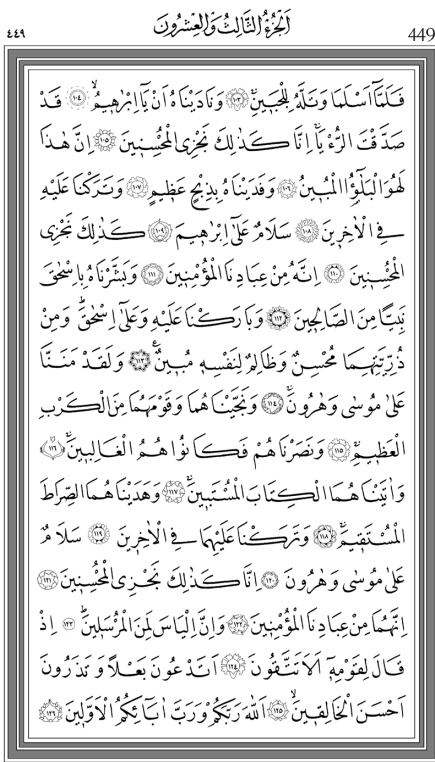 ٤٤٩ اَلْجُزْءُ الثَّالِثُ وَالْعِشْرُونَ 449
فَلَمَّٓا اَسْلَمَا وَتَلَّهُ لِلْجَبٖينِۚ ﴿١٠٣﴾ وَنَادَيْنَاهُ اَنْ يَٓا اِبْرٰهٖيمُۙ ﴿١٠٤﴾ قَدْ
صَدَّقْتَ الرُّءْيَاۚ اِنَّا كَذٰلِكَ نَجْزِى الْمُحْسِنٖينَ ﴿١٠٥﴾ اِنَّ هٰذَا
لَهُوَ الْبَلٰٓؤُا الْمُبٖينُ ﴿١٠٦﴾ وَفَدَيْنَاهُ بِذِبْحٍ عَظٖيمٍ ﴿١٠٧﴾ وَتَرَكْنَا عَلَيْهِ
فِى الْاٰخِرٖينَ ﴿١٠٨﴾ سَلَامٌ عَلٰٓى اِبْرٰهٖيمَ ﴿١٠٩﴾ كَذٰلِكَ نَجْزِى
الْمُحْسِنٖينَ ﴿١١٠﴾ اِنَّهُ مِنْ عِبَادِنَا الْمُؤْمِنٖينَ ﴿١١١﴾ وَبَشَّرْنَاهُ بِاِسْحٰقَ
نَبِيًّا مِنَ الصَّالِحٖينَ ﴿١١٢﴾ وَبَارَكْنَا عَلَيْهِ وَعَلٰٓى اِسْحٰقَۜ وَمِنْ
ذُرِّيَّتِهِمَا مُحْسِنٌ وَظَالِمٌ لِنَفْسِهٖ مُبٖينٌ ﴿١١٣﴾ وَلَقَدْ مَنَنَّا
عَلٰى مُوسٰى وَهٰرُونَۚ ﴿١١٤﴾ وَنَجَّيْنَاهُمَا وَقَوْمَهُمَا مِنَ الْكَرْبِ
الْعَظٖيمِۚ ﴿١١٥﴾ وَنَصَرْنَاهُمْ فَكَانُوا هُمُ الْغَالِبٖينَۚ ﴿١١٦﴾
وَاٰتَيْنَاهُمَا الْكِتَابَ الْمُسْتَبٖينَۚ ﴿١١٧﴾ وَهَدَيْنَاهُمَا الصِّرَاطَ
الْمُسْتَقٖيمَۚ ﴿١١٨﴾ وَتَرَكْنَا عَلَيْهِمَا فِى الْاٰخِرٖينَ ﴿١١٩﴾ سَلَامٌ
عَلٰى مُوسٰى وَهٰرُونَ ﴿١٢٠﴾ اِنَّا كَذٰلِكَ نَجْزِى الْمُحْسِنٖينَ ﴿١٢١﴾
اِنَّهُمَا مِنْ عِبَادِنَا الْمُؤْمِنٖينَ ﴿١٢٢﴾ وَاِنَّ اِلْيَاسَ لَمِنَ الْمُرْسَلٖينَۜ ﴿١٢٣﴾ اِذْ
قَالَ لِقَوْمِهٖٓ اَلَا تَتَّقُونَ ﴿١٢٤﴾ اَتَدْعُونَ بَعْلًا وَتَذَرُونَ
اَحْسَنَ الْخَالِقٖينَۙ ﴿١٢٥﴾ اَللّٰهَ رَبَّكُمْ وَرَبَّ اٰبَٓائِكُمُ الْاَوَّلٖينَ ﴿١٢٦﴾